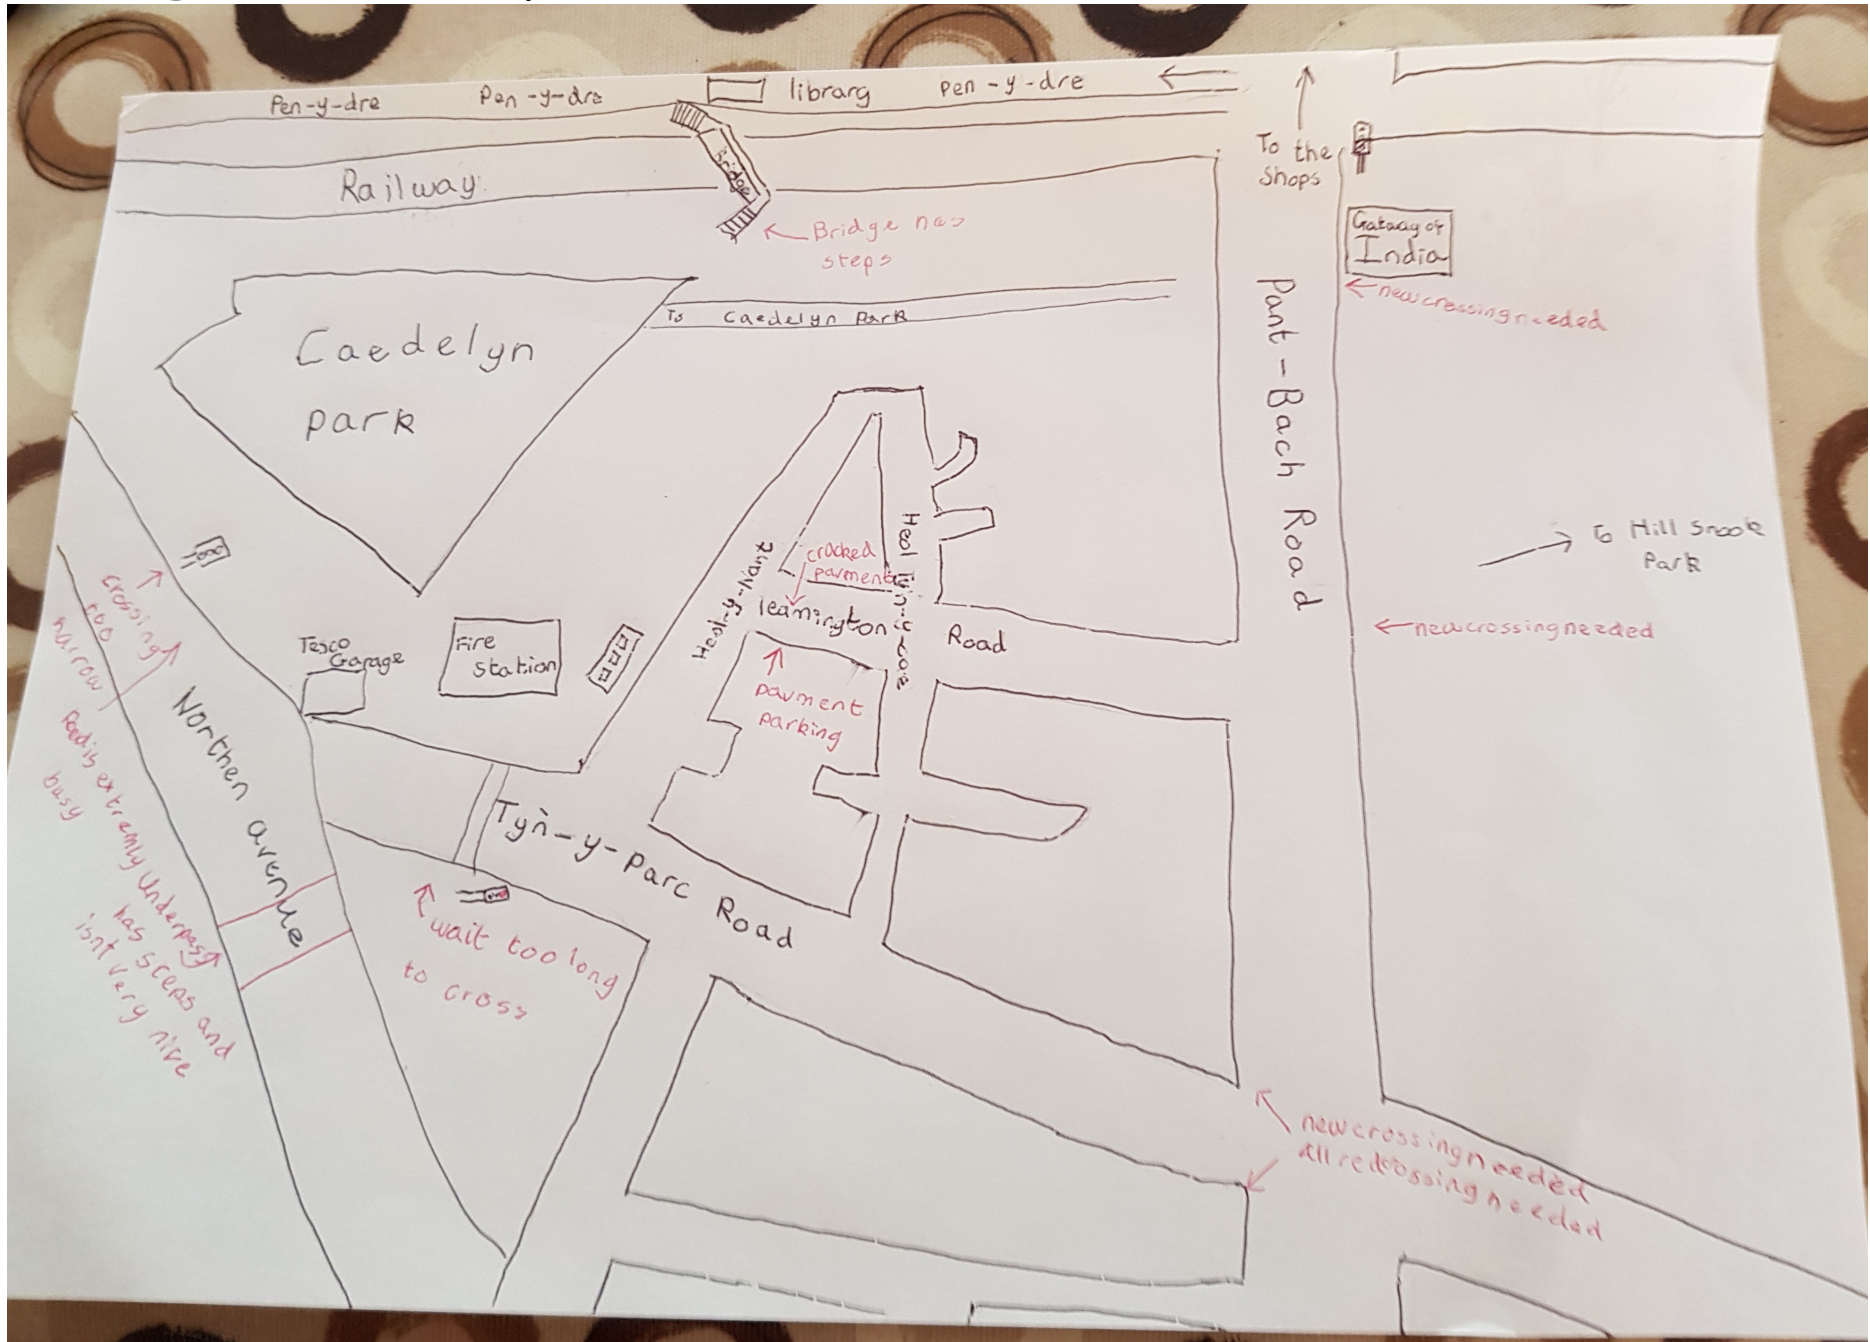 Pen-y-dre
Pen-y-dre
library
Pen-y-dre
To the
Shops
Railway
Bridge
Bridge has
steps
Gataay of
India
new crossing needed
To Caedelyn Park
Caedelyn
park
Pant-Bach Road
To Hill Snook
Park
cracked
pavment
Heol-y-Nant
leamington Road
new crossing needed
crossing
too
narrow
Tesco
Garage
Fire
Station
pavment
parking
Northen avenue
Road is extremly
busy
Underpass
has steps and
isnt very nice
Tyn-y-parc Road
wait too long
to cross
new crossing needed
all red crossing needed